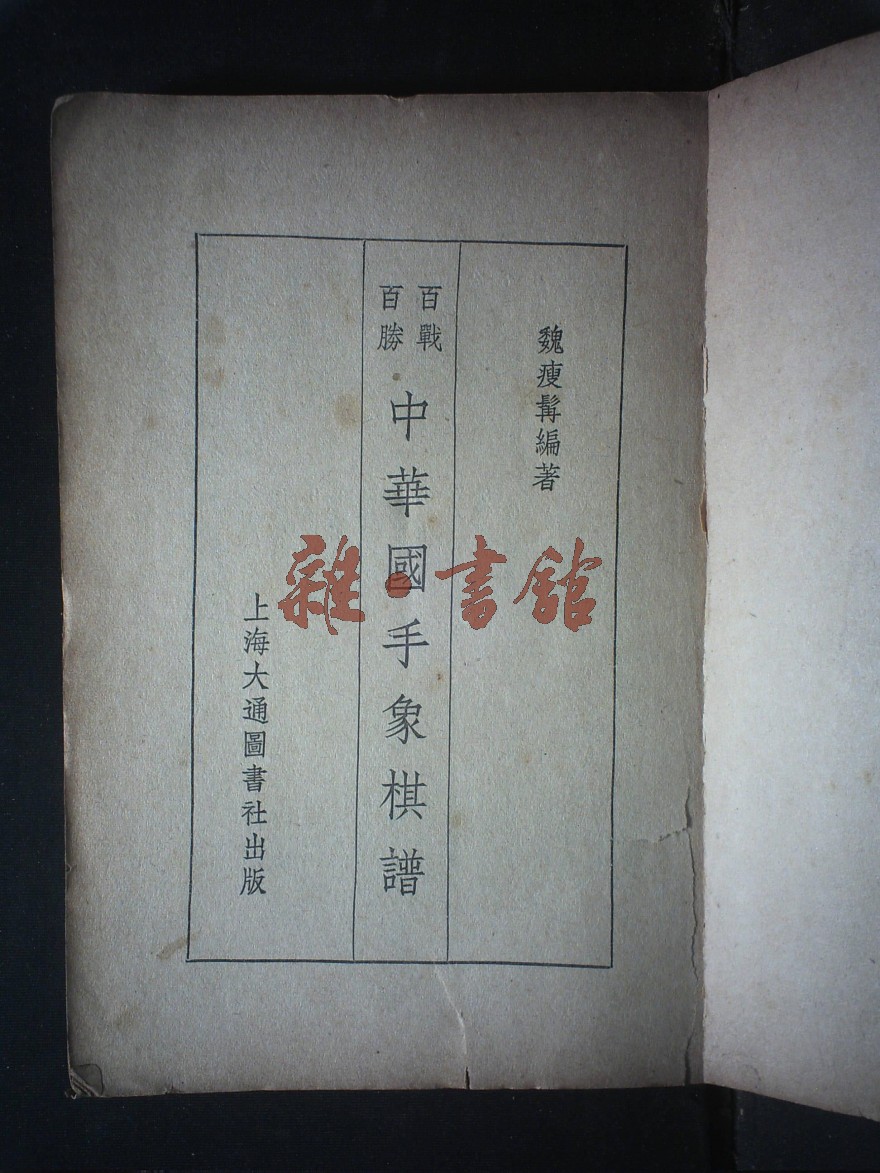 魏瘦髯編著
百戰
百勝
中華國手象棋譜
上海大通圖書社出版
雜書館